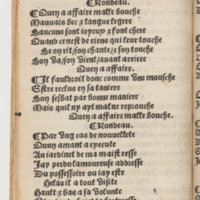 ¶Rondeau.
Quey a affaire malle bouche
Mauuais bec & langue legere
Saucuns sont ioyeux & font chere
Quand ne rest de riens qui leur touche
Soy rit/soy chante/& soy touche
Soy va/soy vient/auant arriere
Quey a affaire.
Il fauldroit donc comme vne mouche
Estre reclus en sa taniere
Soy esbat par bonne maniere
Mais quil ny ayt malle reprouche
Quey a affaire malle bouche.
¶Rondeau.
¶Par vng cas de nouuellete
Duny amant a execute
Au iardinet de ma maistresse
Jay perdu lamoureuse adresse
Du possessoire ou iay este
Helas il a tout visite
Hault & bas a sa volunte